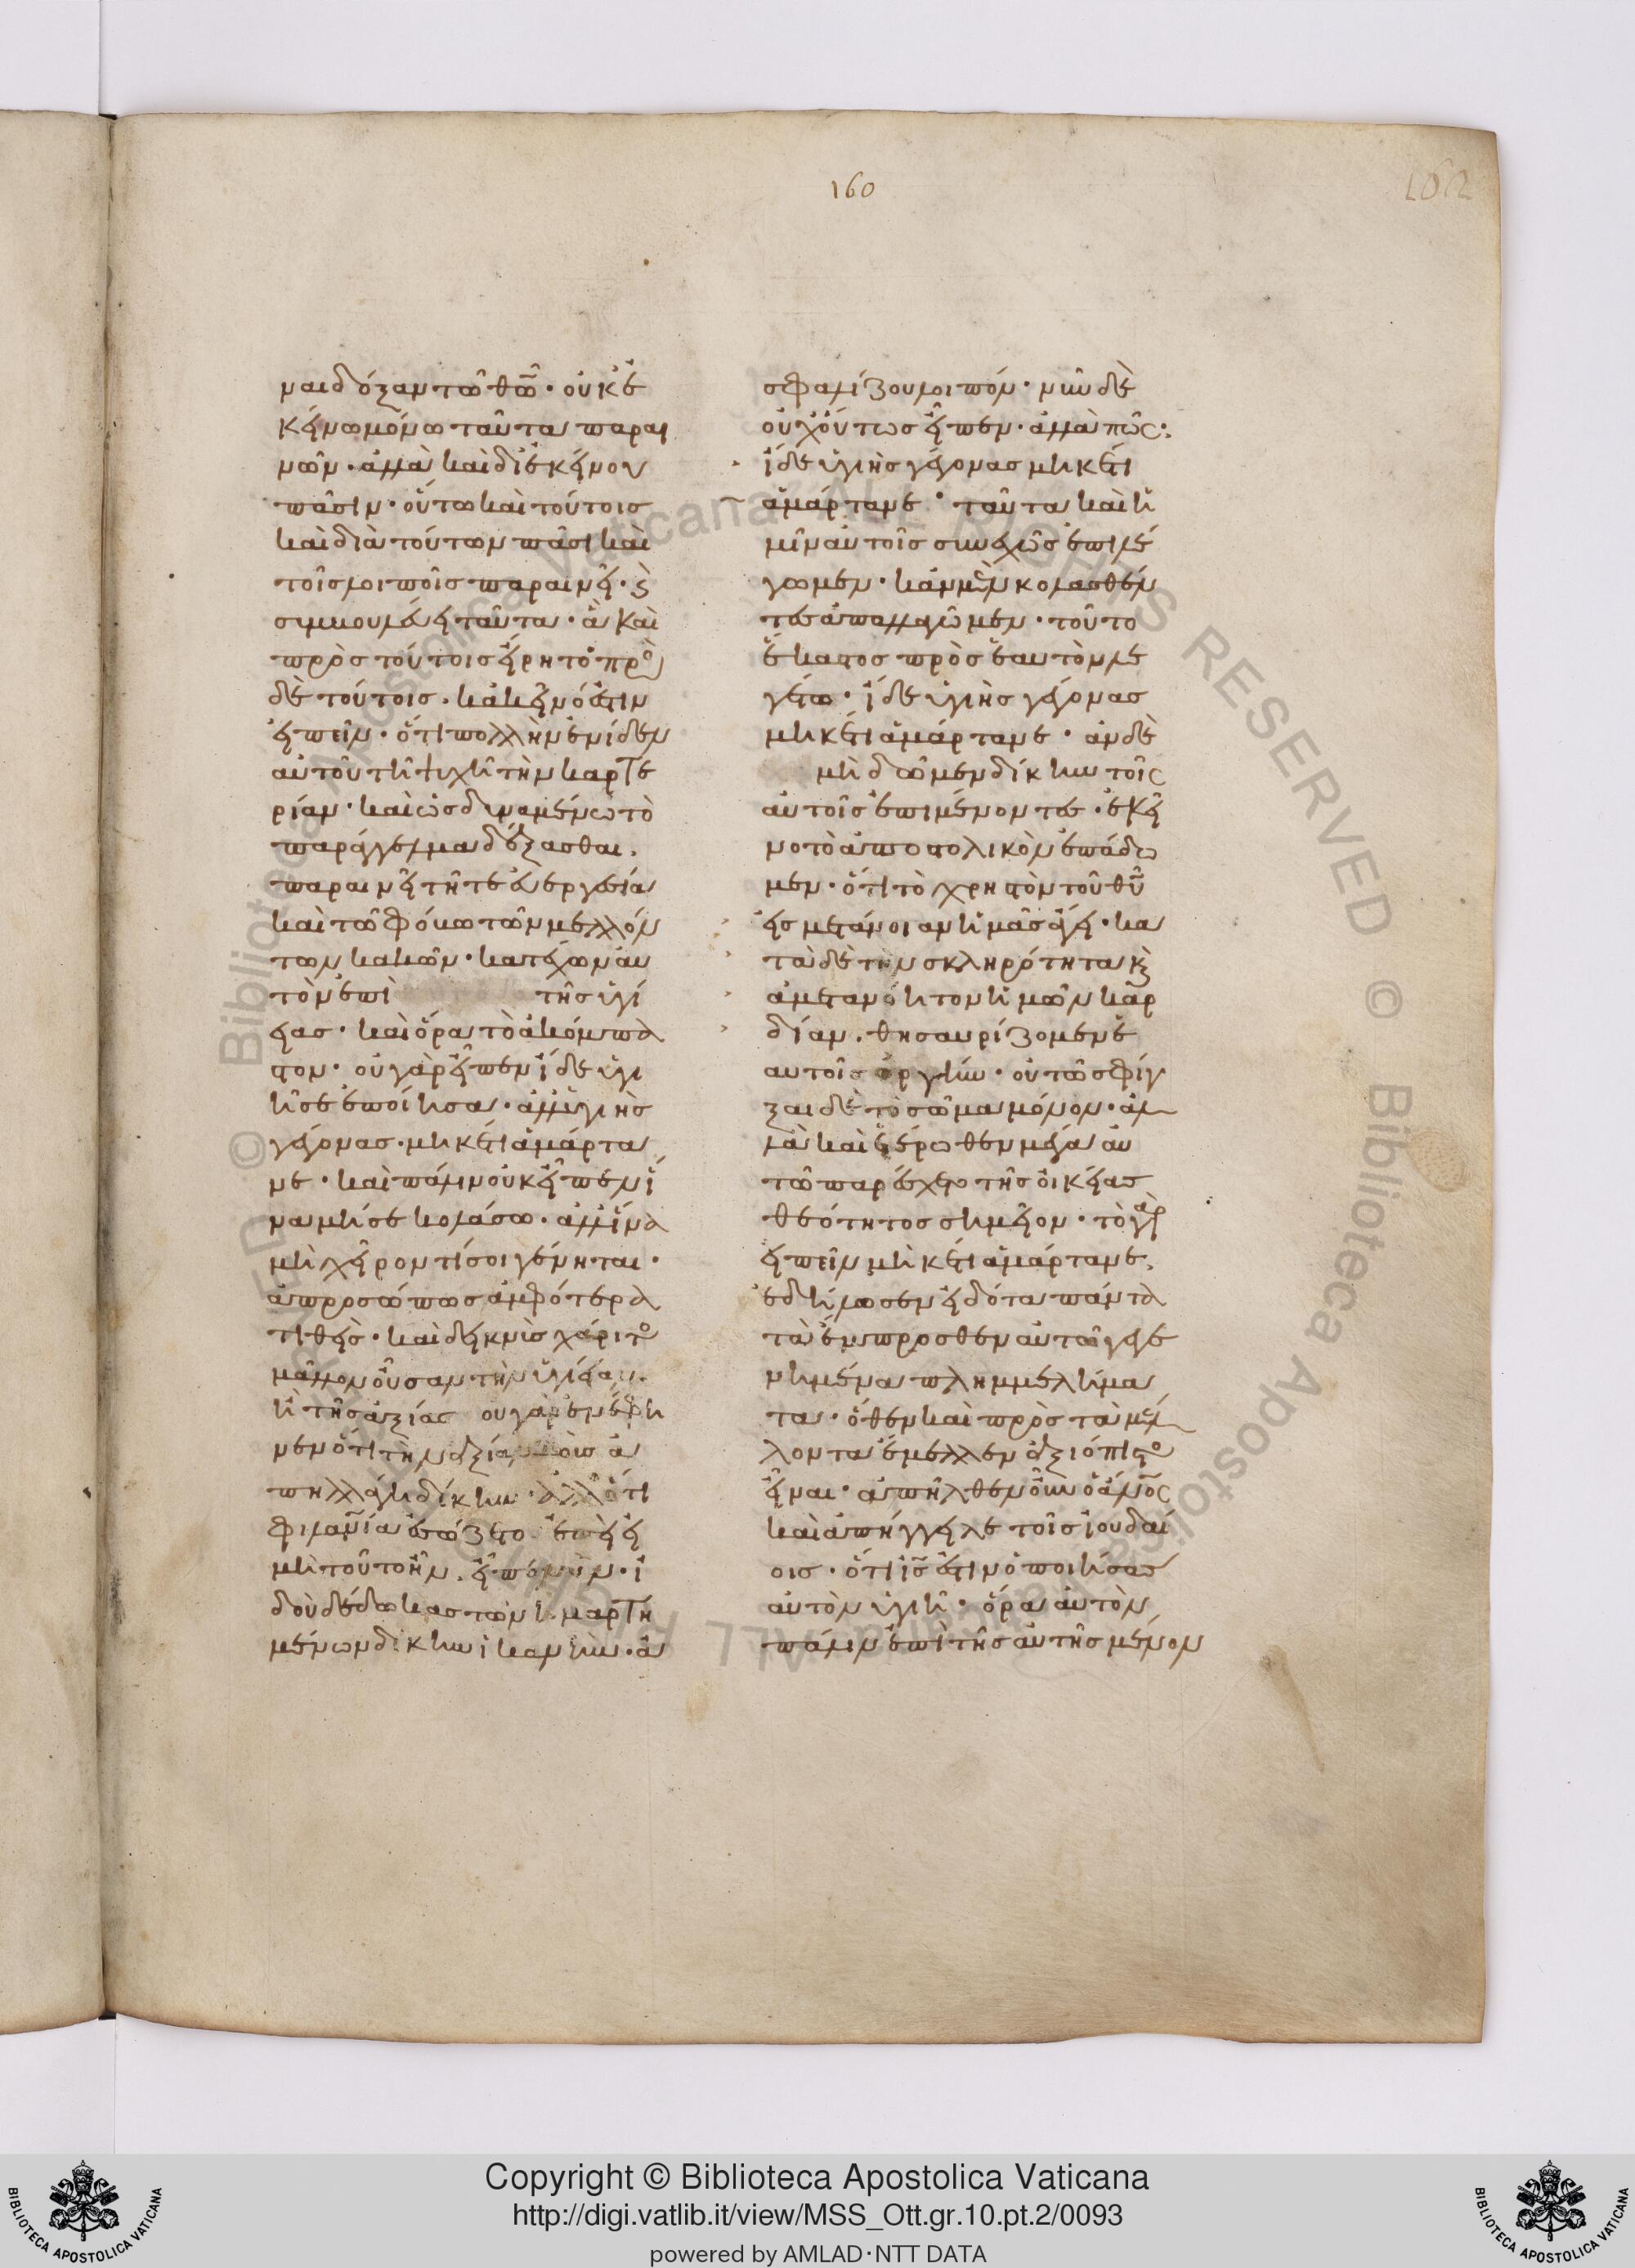 160
162
ναι δόξαν τῶ θῶ · οὐκ ἐ
κείνω μόνω ταῦτα παραι
νῶν · ἀλλὰ καὶ δι ἐκείνου
πᾶσιν · οὕτω καὶ τούτοις
καὶ διὰ τούτων πᾶσι καὶ
τοῖς λοιποῖς παραινεῖ ·
ταῦτα · ἃ καὶ
πρὸς τούτοις εἴρητο πρὸ
δὲ τούτοις · κἀκεῖνό ἐστιν
εἰπεῖν · ὅτι πολλὴν ἐνίδεν
αὐτοῦ τῆ ψυχῆ τὴν καρτε
ρίαν · καὶ ὡς δυναμένω τὸ
παράγγελμα δέξασθαι ·
παραινεῖ τῆ τε εὐεργεσία
καὶ τῶ φόβω τῶν μελλόν
των κακῶν · κατέχων αὐ
τὸν ἐπὶ τῆς ὑγι
είας · καὶ ὅρα τὸ ἀκόμπα
στον · οὐ γὰρ εἶπεν ἴδε ὑγι
ῆ σε ἐποίησα · ἀλλ ὑγιὴς
γέγονας · μηκέτι ἁμάρτα
νε · καὶ πάλιν οὐκ εἶπεν ἵ
να μή σε κολάσω · ἀλλ ἵνα
μὴ χεῖρον τί σοι γένηται ·
ἀπροσώπως ἀμφότερα
τιθεὶς · καὶ δεικνὺς χάριτο
μᾶλλον οὖσαν τὴν ὑγίειαν ·
ἢ τῆς ἀξίας οὐ γὰρ ἐνέφη
νεν ὅτι τὴν ἀξίαν δοὺς ἀ
πηλλάγη δίκην · ἀλλ ὅτι
φιλανία ἐσώζετο · ἐπεὶ εἰ
μὴ τοῦτο ἦν · εἶπεν ἂν · ἰ
δοὺ δέδωκας τῶν ἡμαρτη
μένων δίκην ἱκανὴν · ἀ
σφαλίζου λοιπόν · νῦν δὲ
οὐχ οὕτως εἶπεν · ἀλλὰ πῶς ·
ἴδε ὑγιὴς γέγονας μηκέτι
ἁμάρτανε · ταῦτα καὶ ἡ
μῖν αὐτοῖς συνεχῶς ἐπιλέ
γωμεν · κἂν μὲν κολασθέν
τες ἀπαλλαγῶμεν · τοῦτο
ἕκαστος πρὸς ἑαυτὸν λε
γέτω · ἴδε ὑγιὴς γέγονας
μηκέτι ἁμάρτανε · ἂν δὲ
μὴ δῶμεν δίκην τοῖς
αὐτοῖς ἐπιμένοντες · ἐκεῖ
νο τὸ ἀποστολικὸν ἐπάδω
μεν · ὅτι τὸ χρηστὸν τοῦ θῦ
εἰς μετάνοιαν ἡμᾶς ἄγει · κα
τὰ δὲ τὴν σκληρότητα κὶ
ἀμετανόητον ἡμῶν καρ
δίαν · θησαυρίζομεν ἑ
αυτοῖς ὀργὴν · οὐ τῶ σφίγ
ξαι δὲ τὸ σῶμα μόνον · ἀλ
λὰ καὶ ἑτέρωθεν μέγα αὐ
τῶ παρέσχετο τῆς οἰκείας
θεότητος σημεῖον · τὸ γὰρ
εἰπεῖν μηκέτι ἁμάρτανε ·
ἐδήλωσεν εἰδότα πάντα
τὰ ἔμπροσθεν αὐτῶ γεγε
νημένα πλημμελήμα
τα · ὅθεν καὶ πρὸς τὰ μέλ
λοντα ἔμελλεν ἀξιόπιστο
εἶναι · ἀπῆλθεν οὖν ὁ ἄνος
καὶ ἀπήγγειλε τοῖς ἰουδαί
οις · ὅτι ἰς ἐστὶν ὁ ποιήσας
αὐτὸν ὑγιῆ · ὅρα αὐτὸν
πάλιν ἐπὶ τῆς αὐτῆς μένον
Copyright © Biblioteca Apostolica Vaticana
http://digi.vatlib.it/view/MSS_Ott.gr.10.pt.2/0093
powered by AMLAD·NTT DATA
BIBLIOTECA APOSTOLICA VATICANA
BIBLIOTECA APOSTOLICA VATICANA